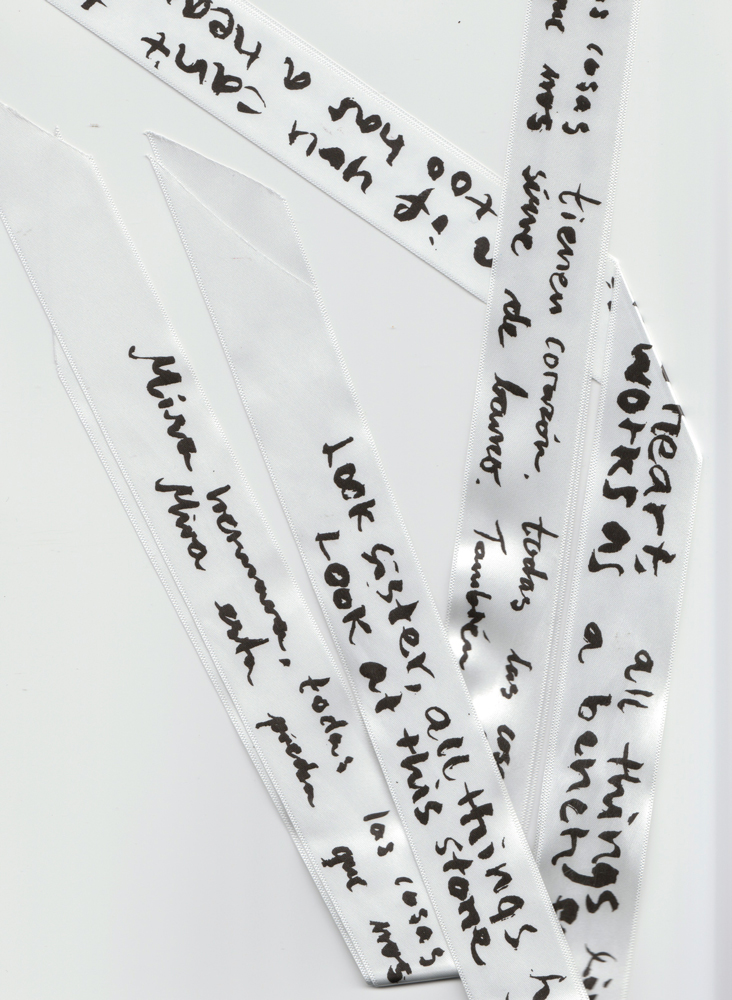 can't
if you
too has a
as cosas tienen corazón. todas las cos
me nos sirve de banco. También
heart, all things
works as a bench
Look sister, all things h
Look at this stone
Mira hermana, todas las cosas
Mira esta piedra que nos